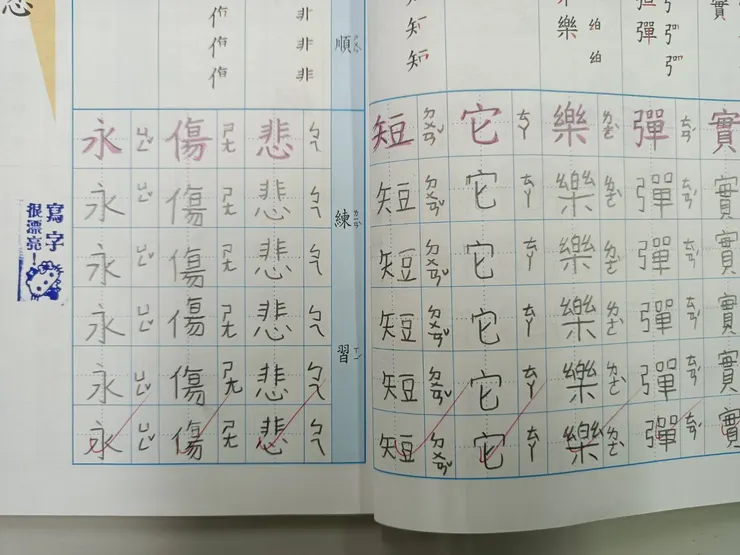 實
實
實
實
實
實
實
彈
彈 ㄊㄢˊ
彈 ㄊㄢˊ
彈 ㄊㄢˊ
彈 ㄊㄢˊ
彈 ㄊㄢˊ
彈 ㄊㄢˊ
樂
樂 ㄌㄜˋ
樂 ㄌㄜˋ
樂 ㄌㄜˋ
樂 ㄌㄜˋ
樂 ㄌㄜˋ
樂 ㄌㄜˋ
它 ㄊㄚ
它 ㄊㄚ
它 ㄊㄚ
它 ㄊㄚ
它 ㄊㄚ
它 ㄊㄚ
短 ㄉㄨㄢˇ
短 ㄉㄨㄢˇ
短 ㄉㄨㄢˇ
短 ㄉㄨㄢˇ
短 ㄉㄨㄢˇ
短 ㄉㄨㄢˇ
順
練習
非
非
非
悲 ㄅㄟ
悲 ㄅㄟ
悲 ㄅㄟ
悲 ㄅㄟ
悲 ㄅㄟ
悲 ㄅㄟ
傷 ㄕㄤ
傷 ㄕㄤ
傷 ㄕㄤ
傷 ㄕㄤ
傷 ㄕㄤ
傷 ㄕㄤ
永 ㄩㄥˇ
永 ㄩㄥˇ
永 ㄩㄥˇ
永 ㄩㄥˇ
永 ㄩㄥˇ
永 ㄩㄥˇ
寫字
很漂亮！